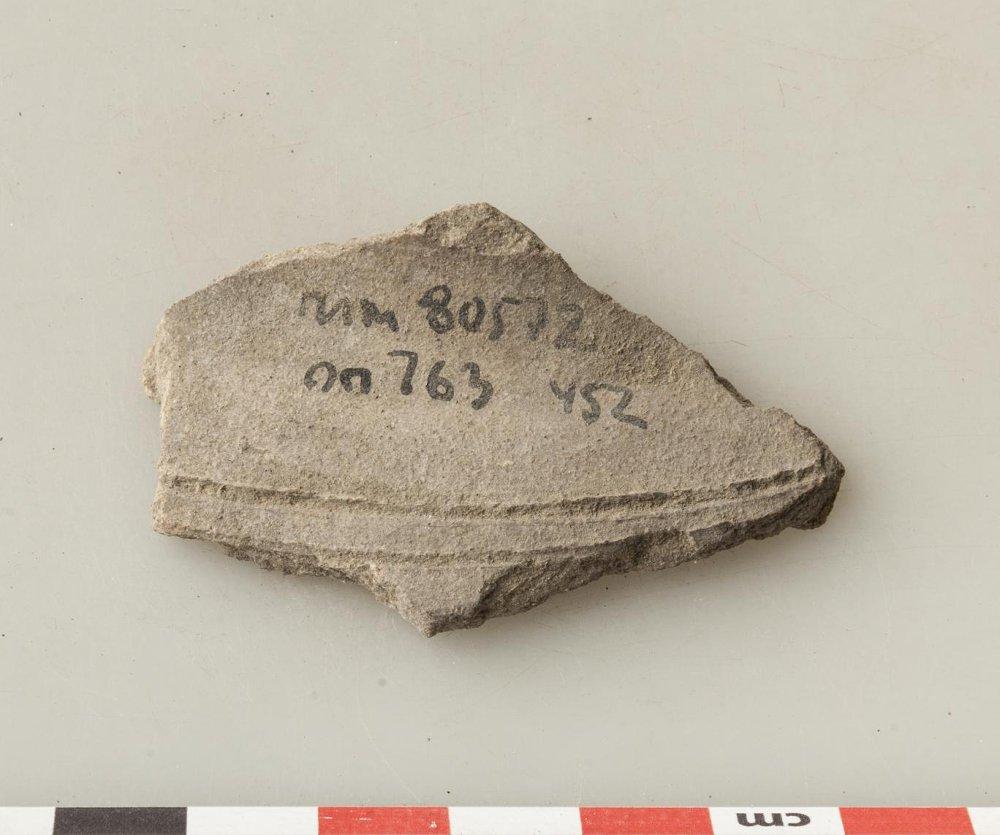 mm 80572
no 763 452
cm